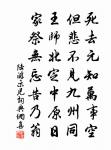 死去元知萬事空
但悲不見九州同
王師北定中原日
家祭無忘告乃翁
陸游示兒詞典網書